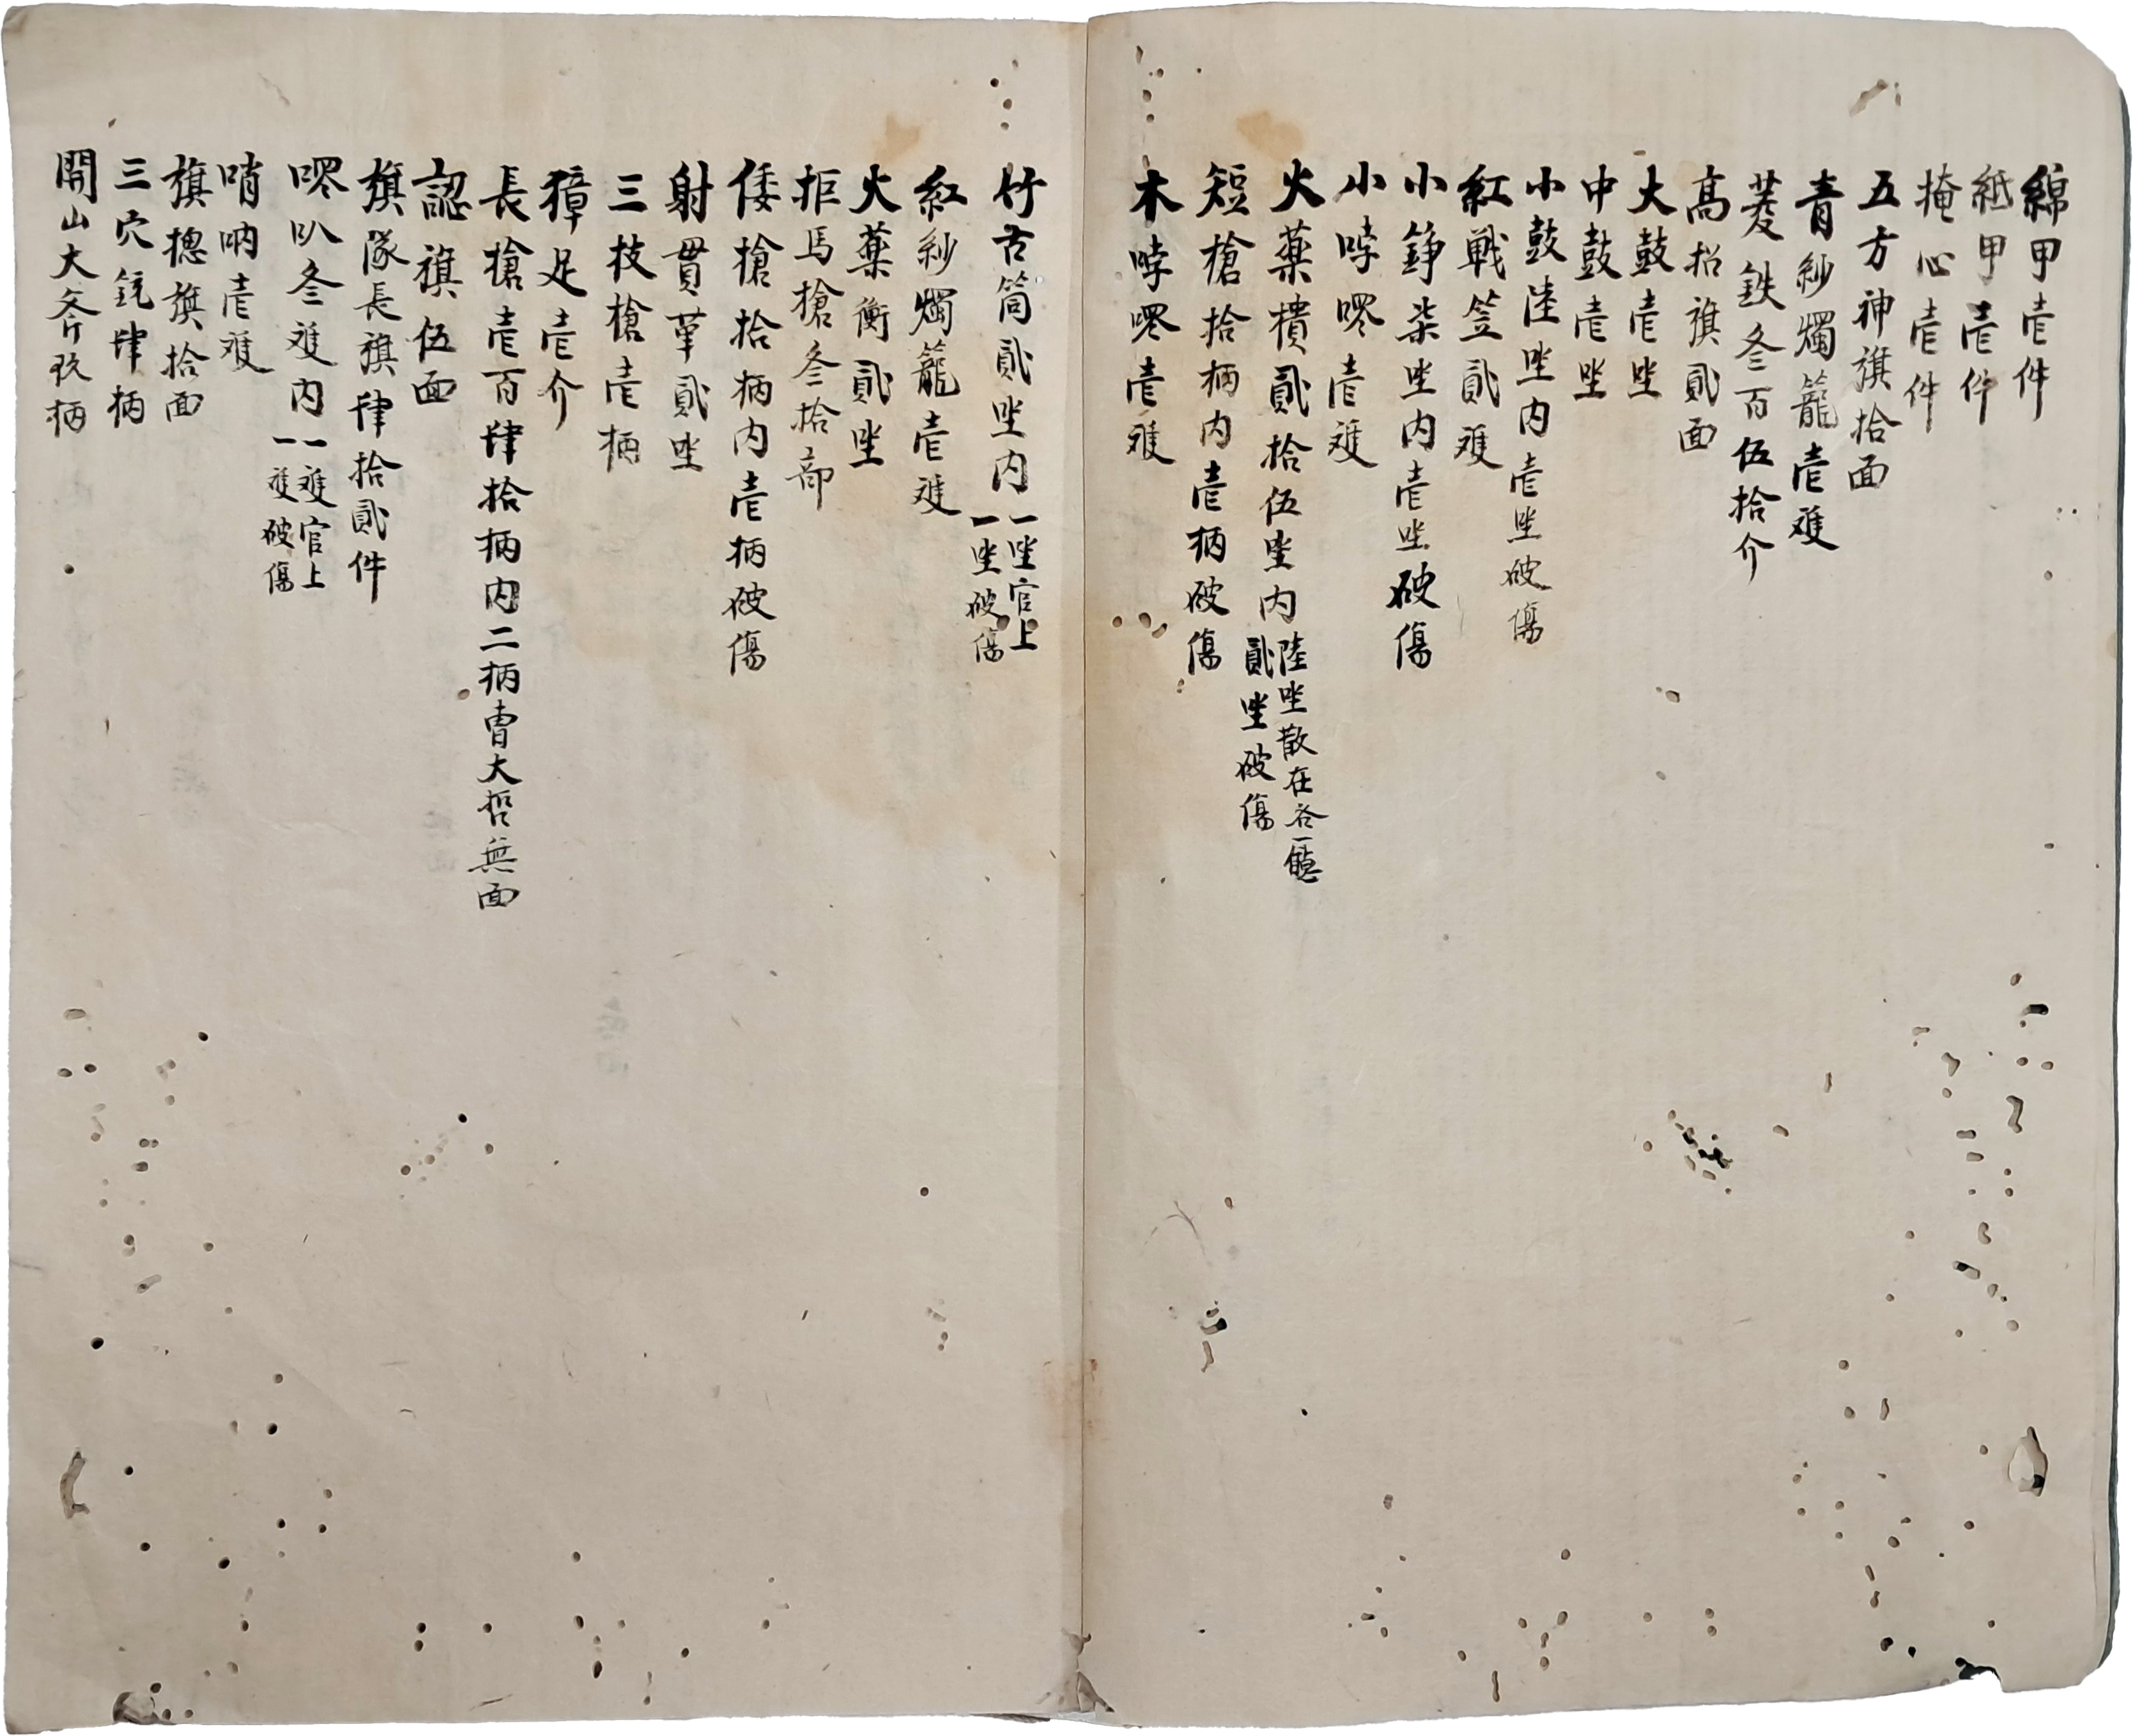 綿甲壱件
紙甲壱件
掩心壱件
五方神旗拾面
青紗燭籠壱雙
菱鉄叄百伍拾介
高招旗貳面
大鼓壱坐
中鼓壱坐
小鼓陸坐内壱坐破傷
紅戦笠貳雙
小錚柒坐内壱坐破傷
小哱囉壱雙
火藥樻貳拾伍坐内
陸坐散在各
貳坐破傷
短槍拾柄内壱柄破傷
木哱囉壱雙
竹古筒貳坐内
一坐官上
一坐破傷
紅紗燭籠壱雙
火藥衡貳坐
拒馬槍叄拾部
倭槍拾柄内壱柄破傷
射貫革貳坐
三枝槍壱柄
獐足壱介
長槍壱百肆拾柄内二柄曺大哲無面
認旗伍面
旗隊長旗肆拾貳件
囉叭叄雙内
一雙官上
一雙破傷
哨吶壱雙
旗摠旗拾面
三穴銃肆柄
開山大斧玖柄